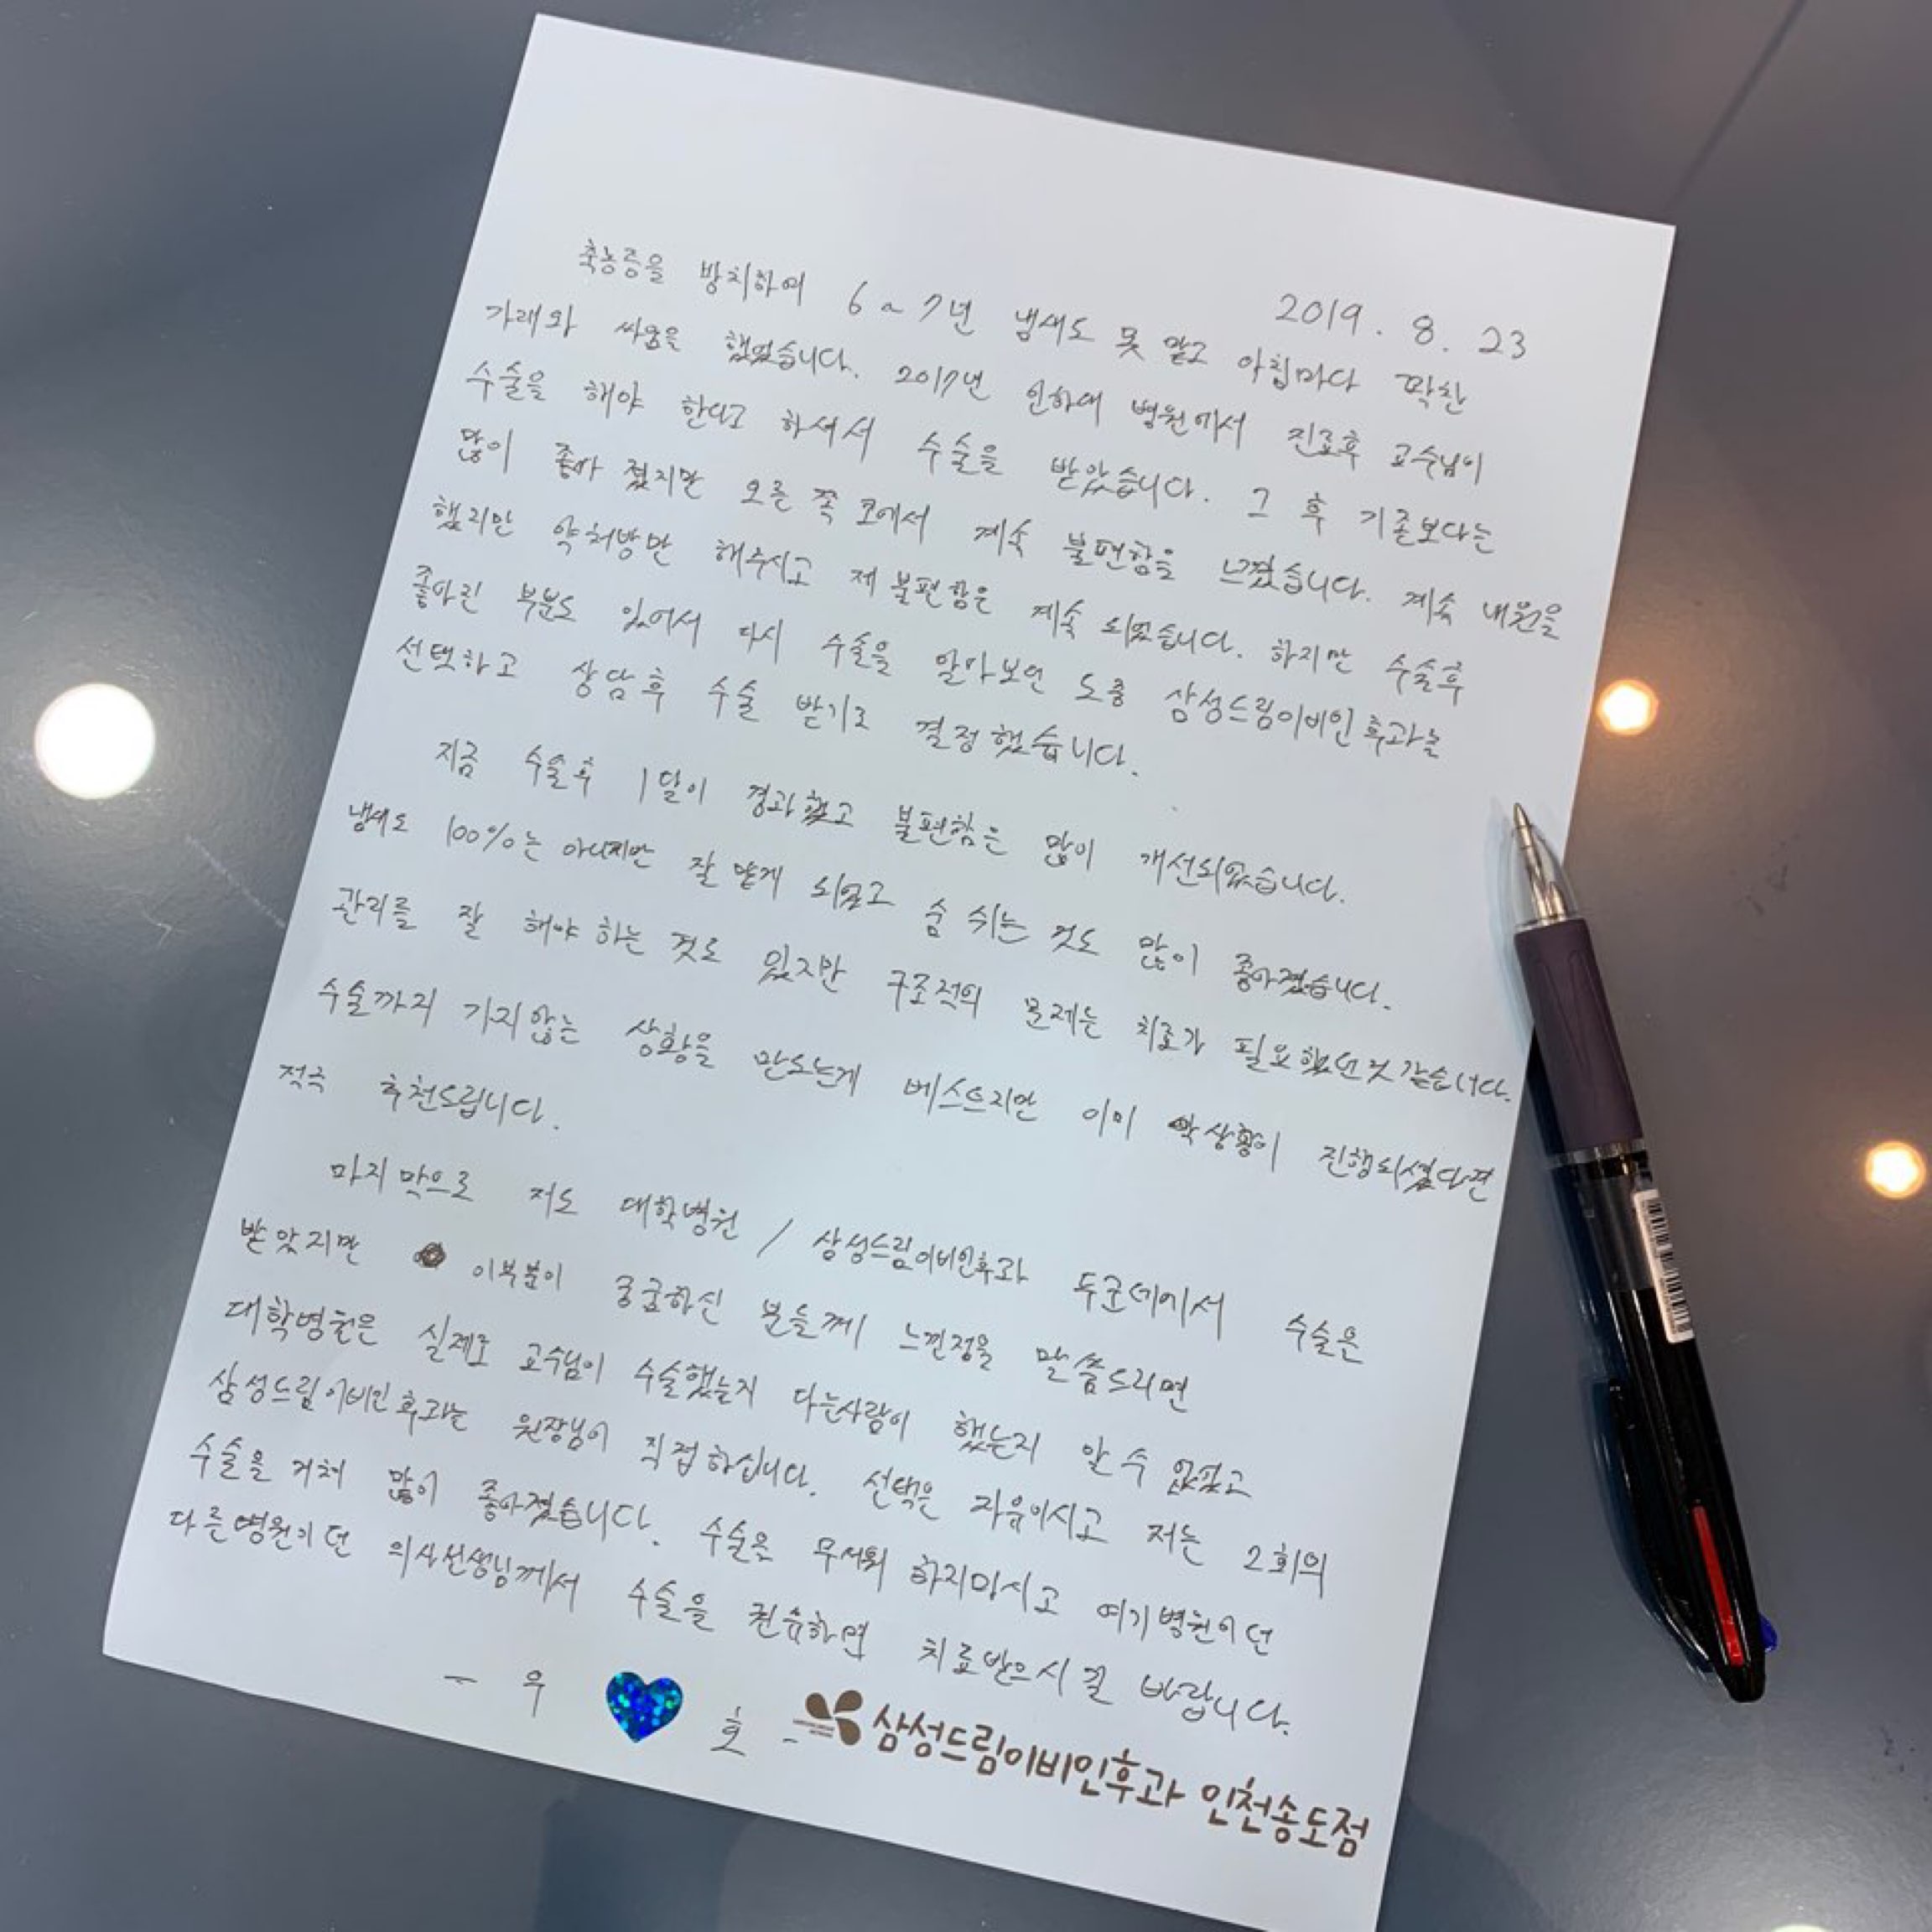 2019. 8. 23
축농증을 방치하여 6~7년 냄새도 못 맡고 아침마다 꽉찬
가래와 싸움을 했었습니다. 2017년 인하대 병원에서 진료후 교수님이
수술을 해야 한다고 하셔서 수술을 받았습니다. 그 후 기존보다는
많이 좋아 졌지만 오른쪽 코에서 계속 불편함을 느꼈습니다. 계속 내원을
했지만 약처방만 해주시고 제 불편함은 계속 되었습니다. 하지만 수술후
좋아진 부분도 있어서 다시 수술을 알아보던 도중 삼성드림이비인후과를
선택하고 상담후 수술 받기로 결정했습니다.
지금 수술후 1달이 경과했고 불편함은 많이 개선되었습니다.
냄새도 100%는 아니지만 잘 맡게 되었고 숨 쉬는 것도 많이 좋아졌습니다.
관리를 잘 해야 하는 것도 있지만 구조적의 문제는 치료가 필요했던것 같습니다.
수술까지 가지않는 상황을 만드는게 베스트지만 이미 상황이 진행되셨다면
적극 추천드립니다.
마지막으로 저도 대학병원 / 삼성드림이비인후과 두군데에서 수술은
받았지만 이부분이 궁금하신 분들께 느낀점을 말씀드리면
대학병원은 실제로 교수님이 수술했는지 다른사람이 했는지 알 수 없었고
삼성드림이비인후과는 원장님이 직접 하십니다. 선택은 자유이시고 저는 2회의
수술을 거쳐 많이 좋아졌습니다. 수술을 무서워 하지마시고 여기병원이던
다른병원이던 의사선생님께서 수술을 권유하면 치료받으시길 바랍니다.
- 우 호 -
삼성드림이비인후과 인천송도점